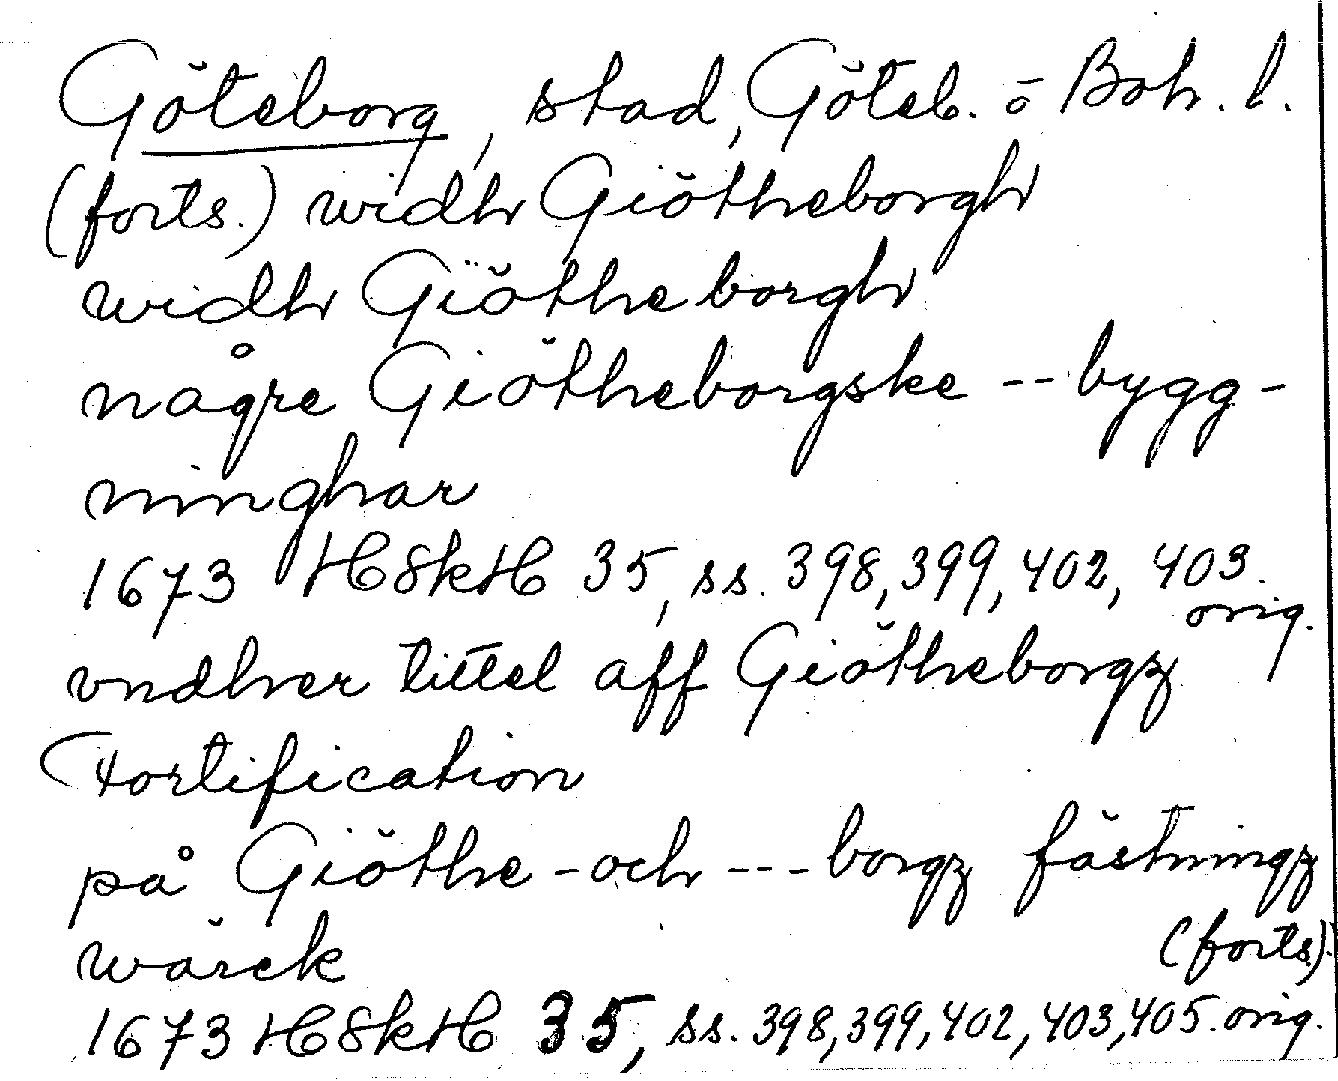 Göteborg, stad, Göteb. o Boh. l.
(forts.) widh Giötheborgh
widh Giötheborgh
någre Giötheborgske -- bygg-
ninghar
1673 HSkH 35, ss. 398, 399, 402, 403.
orig.
vndher tittel aff Giötheborgz
Fortification
på Giöthe - och --- borgz fästningz
wärck
(forts.)
1673 HSkH 35, ss. 398, 399, 402, 403, 405. orig.